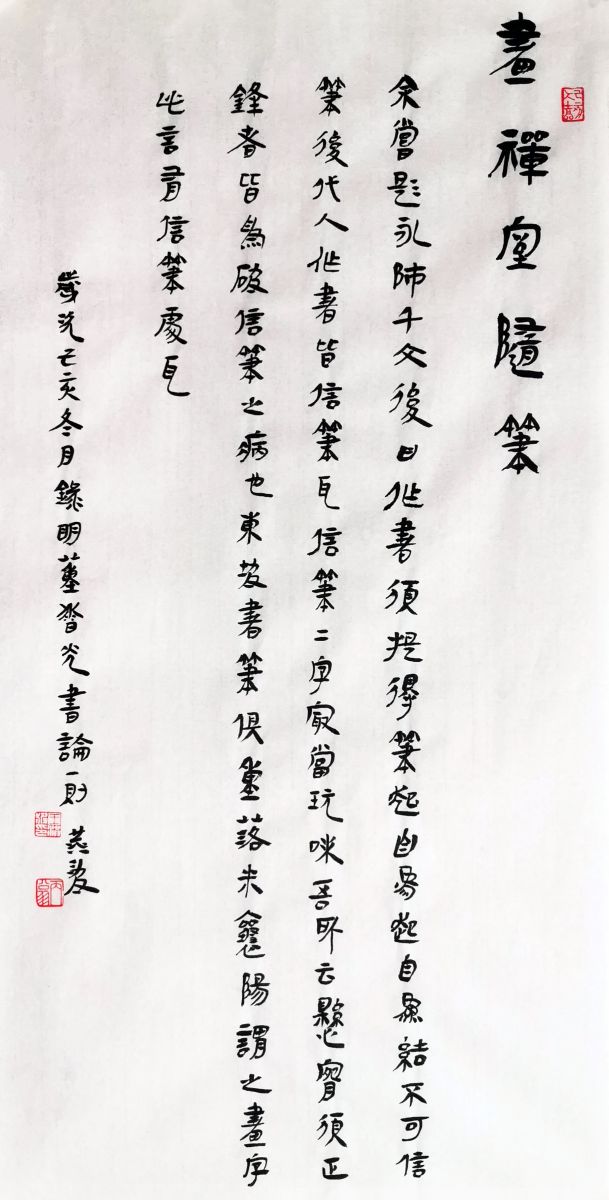 畫禪室隨筆
余嘗題永師千文後曰作書須提得筆起自為起自為結不可信
筆後代人作書皆信筆耳信筆二字最當玩味吾所云懸腕須正
鋒者皆為破信筆之病也東坡書筆俱重落米襄陽謂之畫字
此言有信筆處耳
歲次己亥冬月錄明董香光書論一則